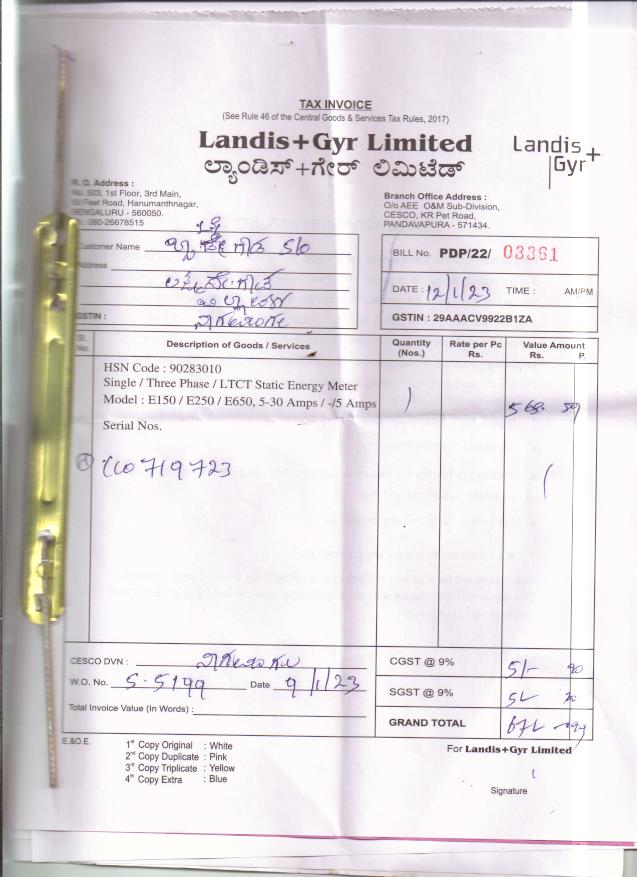 TAX INVOICE
(See Rule 46 of the Central Goods & Services Tax Rules, 2017)
Landis+Gyr Limited
ಲ್ಯಾಂಡಿಸ್+ಗೇರ್ ಲಿಮಿಟೆಡ್
Landis+
Gyr
R. O. Address :
No. 503, 1st Floor, 3rd Main,
Feet Road, Hanumanthnagar,
BENGALURU - 560050.
080-26678515
Branch Office Address :
O/o AEE O&M Sub-Division,
CESCO, KR Pet Road,
PANDAVAPURA - 571434.
Customer Name S/o
Address
GSTIN :
BILL No. PDP/22/ 03361
DATE : 12/1/23 TIME : AM/PM
GSTIN : 29AAACV9922B1ZA
Sl. No. Description of Goods / Services Quantity (Nos.) Rate per Pc Rs. Value Amount Rs. P.
HSN Code : 90283010
Single / Three Phase / LTCT Static Energy Meter
Model : E150 / E250 / E650, 5-30 Amps / -/5 Amps 1
Serial Nos.
719723
CESCO DVN :
W.O. No. S-5199 Date 9/1/23
Total Invoice Value (In Words) :
CGST @ 9%
SGST @ 9%
GRAND TOTAL
E.&O.E.
1st Copy Original : White
2nd Copy Duplicate : Pink
3rd Copy Triplicate : Yellow
4th Copy Extra : Blue
For Landis+Gyr Limited
Signature